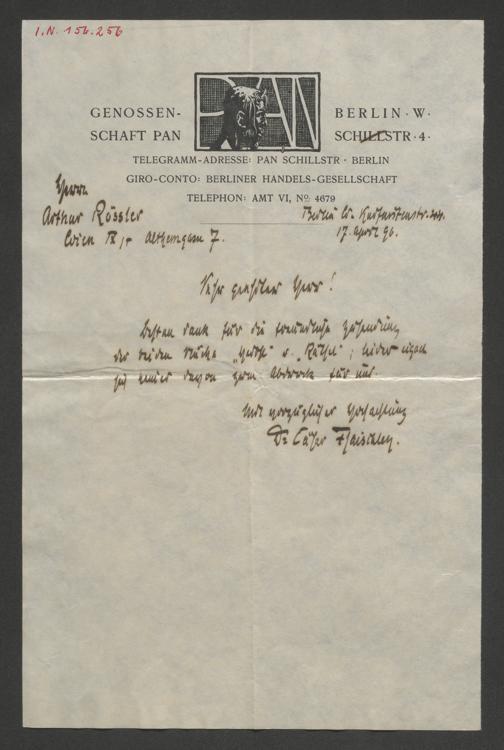 I.N. 156.256
PAN
GENOSSEN-
SCHAFT PAN
BERLIN · W ·
SCHILLSTR · 4 ·
TELEGRAMM-ADRESSE: PAN SCHILLSTR · BERLIN
GIRO-CONTO: BERLINER HANDELS-GESELLSCHAFT
TELEPHON: AMT VI, No. 4679
Herrn
Arthur Rössler
Wien
7.
Berlin W.
17. April 96.
Sehr geehrter Herr!
Besten Dank für die freundliche Zusendung
der beiden Stücke u. "Räthsel"; leider eignet
sich keines davon zum Abdruck für uns.
Mit vorzüglicher Hochachtung
Dr Cäsar Flaischlen.